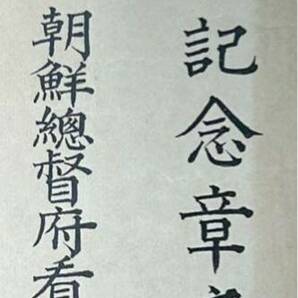 記念章
朝鮮總督府看